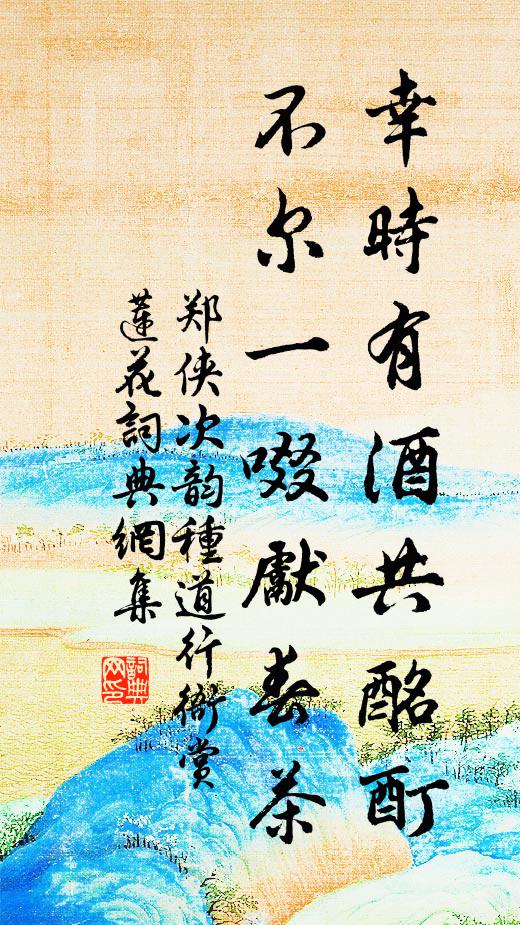 幸時有酒共酩酊
不尔一啜獻春茶
郑侠次韵種道行衙赏
蓮花詞典網集
詞典
网印